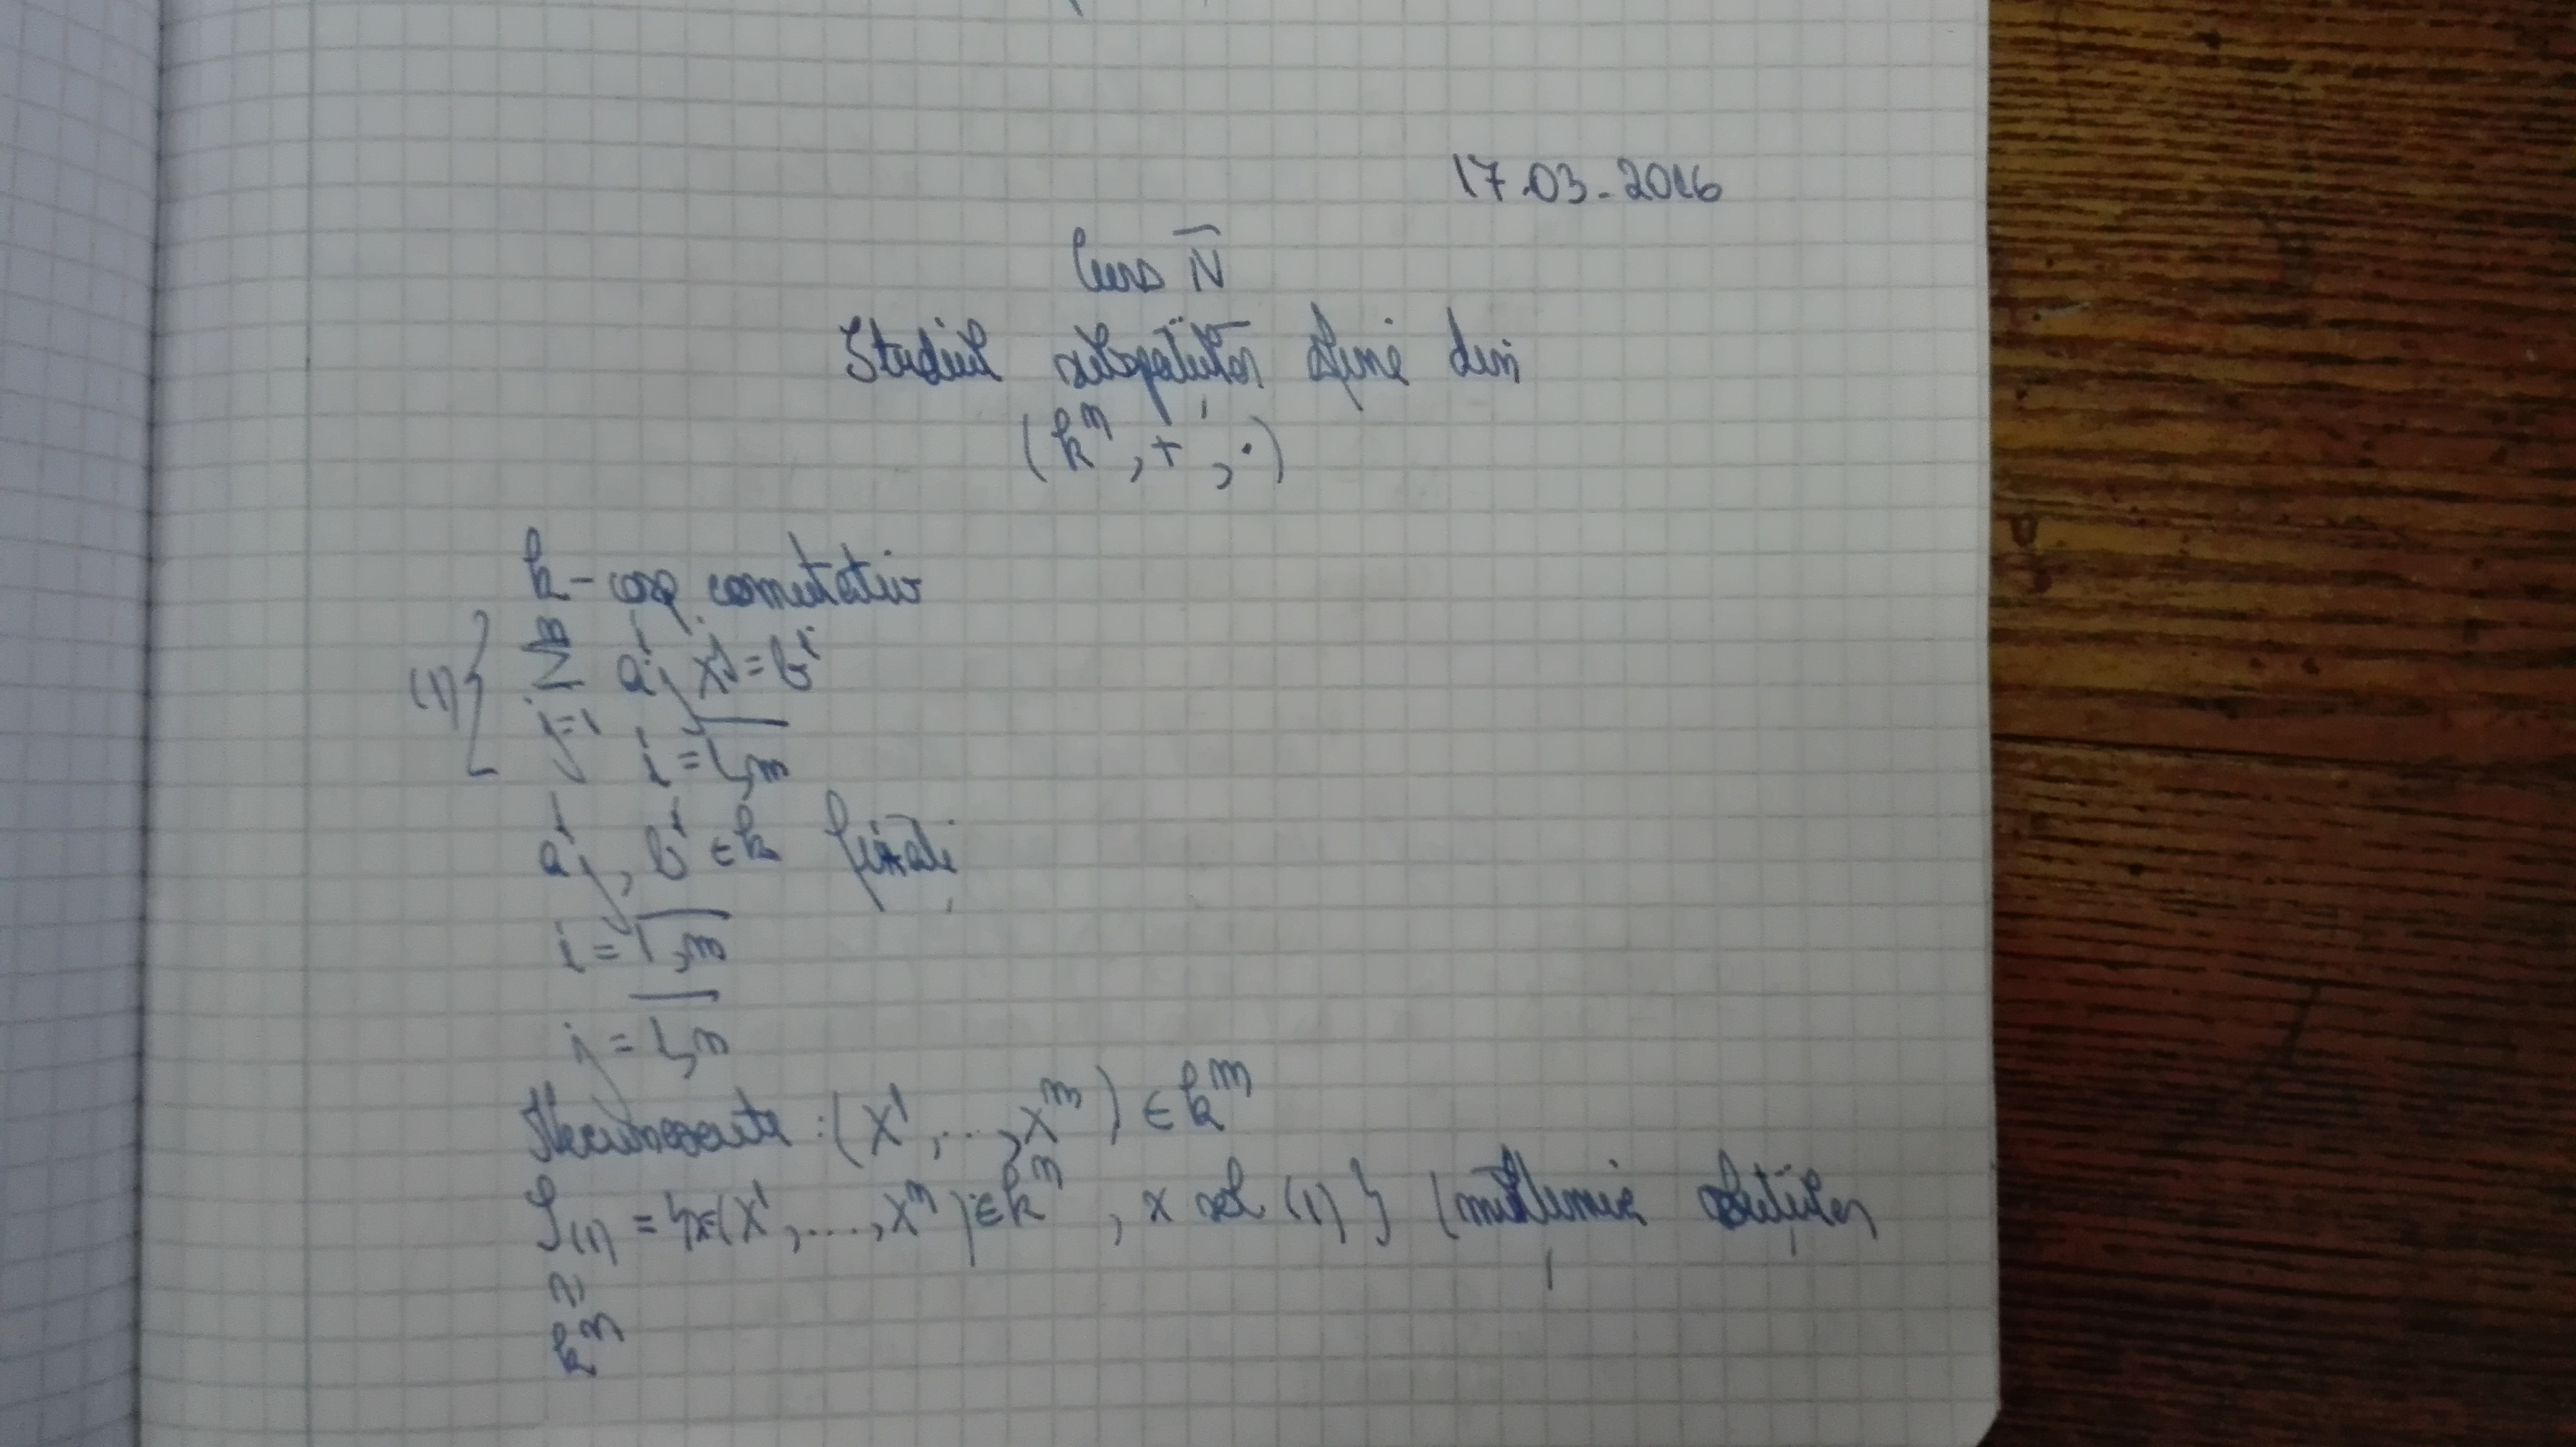 17.03.2016
Curs IV
Studiul subspațiilor afine din
(k^n, +, ·)
k - corp comutativ
(1) { ∑_{j=1}^{n} a^i_j x^j = b^i
i = \overline{1,m}
a^i_j, b^i ∈ k fixați
i = \overline{1,m}
j = \overline{1,n}
Necunoscuta : (x^1, ..., x^n) ∈ k^n
S_{(1)} = {x=(x^1, ...., x^n) ∈ k^n, x sol (1)} (mulțimea soluțiilor
∩
k^n